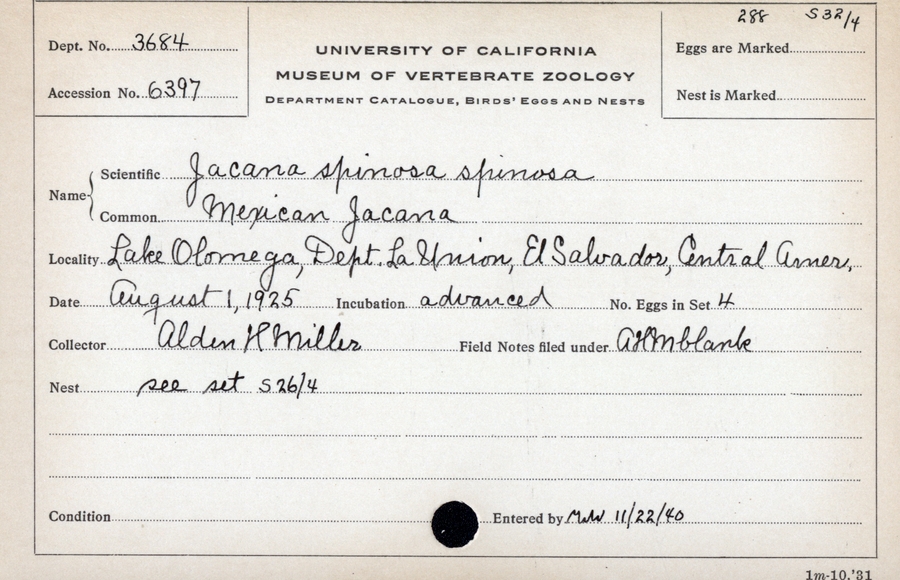 288 S32/4
Dept. No. 3684
UNIVERSITY OF CALIFORNIA
Eggs are Marked
MUSEUM OF VERTEBRATE ZOOLOGY
Accession No. 6397
DEPARTMENT CATALOGUE, BIRDS' EGGS AND NESTS
Nest is Marked
Name
Scientific Jacana spinosa spinosa
Common Mexican Jacana
Locality Lake Olomega, Dept. La Union, El Salvador, Central Amer.
Date August 1, 1925 Incubation advanced No. Eggs in Set 4
Collector Alden H Miller Field Notes filed under AHM blank
Nest see set S26/4
Condition Entered by 11/22/40
1m-10,'31